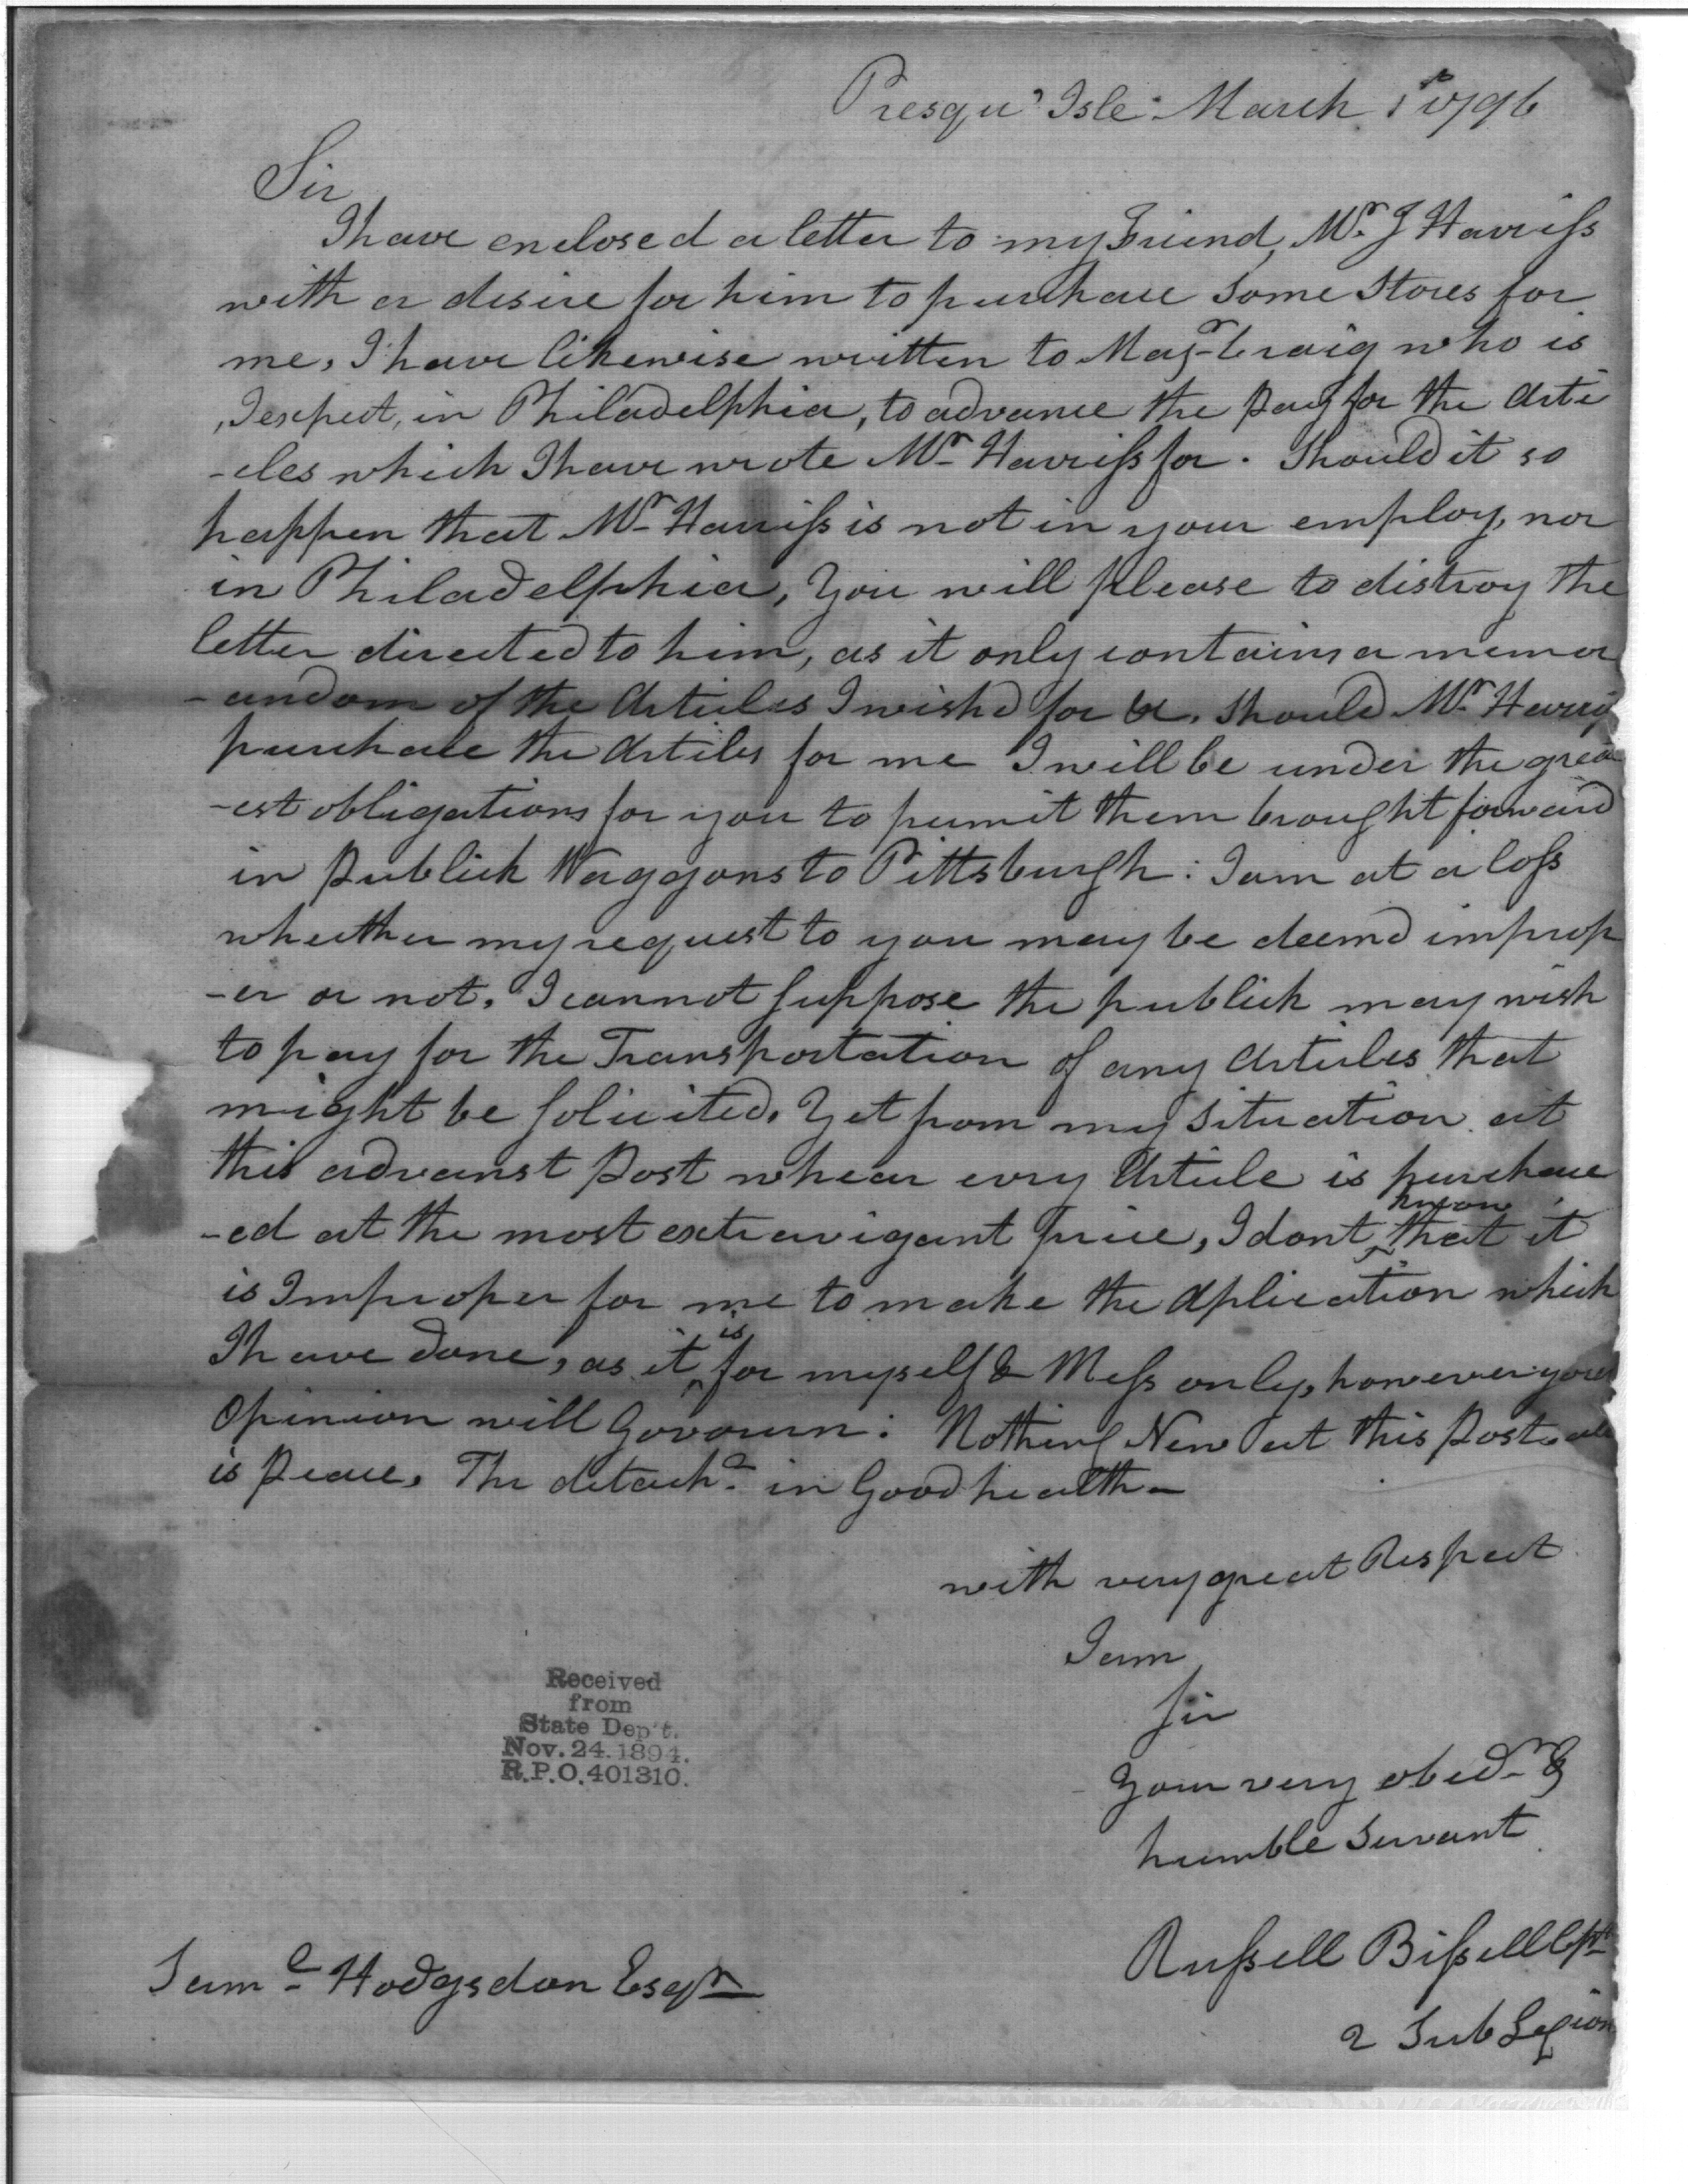 Presqu' Isle March 1st 1796
Sir
I have enclosed a letter to my Friend, Mr. J Harriss
with a desire for him to purchase some stores for
me, I have likewise written to Majr Craig who is
, I expect, in Philadelphia, to advance the pay for the Arti
-cles which I have wrote Mr Harriss for. Should it so
happen that Mr Harriss is not in your employ, nor
in Philadelphia, You will please to distroy the
letter directed to him, as it only contains a memor
-andom of the Articles I wishd for &c. Should Mr. Harriss
purchase the Artiles for me I will be under the great
-est obligations for you to permit them brought forward
in publick Waggons to Pittsburgh: I am at a loss
wheither my request to you may be deemd improp
-er or not, I cannot suppose the publick may wish
to pay for the Transportation of any Articles that
might be solicited. Yet from my situation at
this advanst post whear evry Article is purchase
-ed at the most extravigant price, I dont know that it
is Improper for me to make the Aplication which
I have done, as it is for myself & Mess only, however your
Opinion will Govourn: Nothing New at this post. all
is peace. The detacht in Good health-
with very great Respect
I am
Sir
Your very obedt &
humble Servant
Russell Bissell Capt
2 Sub Legion
Saml Hodgsdon Esqr
Received
from
State Dep't.
Nov. 24. 1894.
R.P.O. 401310.